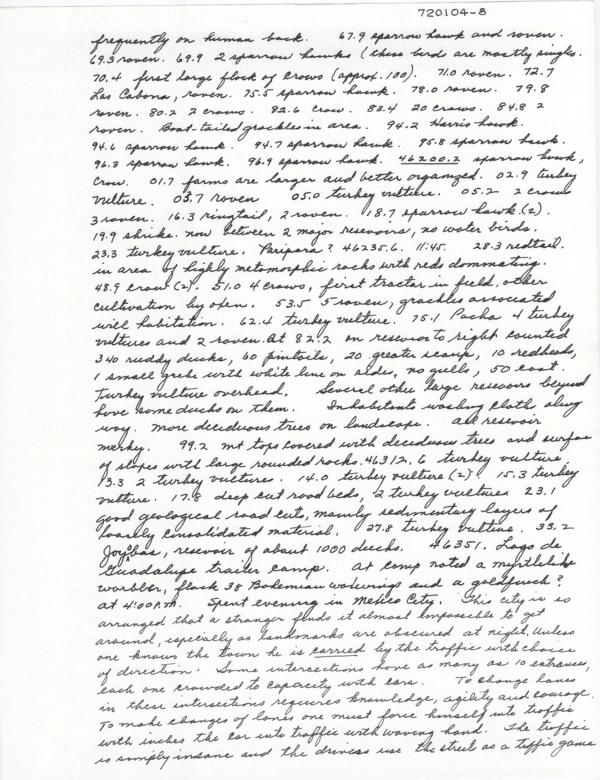 720104-8
frequently on human back. 67.9 sparrow hawk and raven.
69.3 raven. 69.9 2 sparrow hawks (these birds are mostly single.
70.4 first large flock of crows (approx. 100). 71.0 raven. 72.7
Las Cabona, raven. 75.5 sparrow hawk. 78.0 raven. 79.8
raven. 80.2 2 crows. 82.6 crow. 83.4 20 crows. 84.8 2
raven. Boat-tailed grackles in area. 94.2 Harris hawk.
94.6 sparrow hawk. 94.7 sparrow hawk. 95.8 sparrow hawk.
96.3 sparrow hawk. 96.9 sparrow hawk. 46200.2 sparrow hawk,
crow. 01.7 farms are larger and better organized. 02.9 turkey
vulture. 03.7 raven 05.0 turkey vulture. 05.2 2 crows
3 raven. 16.3 ringtail, 2 raven. 18.7 sparrow hawk (2).
19.9 shrike. now between 2 major resevoirs, no water birds.
23.3 turkey vulture. Paripara? 46235.6. 11:45. 28.3 redtail.
in area of highly metamorphic rocks with reds dommating.
48.9 crow (2). 51.0 4 crows, first tractor in field, other
cultivation by oxen. 53.5 5 raven, grackles associated
will habitation. 62.4 turkey vulture. 75.1 Pacha 4 turkey
vultures and 2 raven. At 82.2 on resevoir to right counted
340 ruddy ducks, 60 pintails, 20 greater scaup, 10 redheads,
1 small grebe with white line on sides, no gulls, 50 coot.
Turkey vulture overhead. Several other large resevoirs beyond
have some ducks on them. Inhabitants washing cloths along
way. More deciduous trees on landscape. All resevoir
merky. 99.2 mt tops covered with deciduous trees and surface
of slopes with large rounded rocks. 46312.6 turkey vulture
13.3 2 turkey vultures. 14.0 turkey vulture (2) 15.3 turkey
vulture. 17.8 deep cut road beds, 2 turkey vultures 23.1
good geological road cuts, mainly sedimentary layers of
loosely consolidated material. 27.8 turkey vulture. 33.2
resevoir of about 1000 ducks. 46351. Lago de
Guadalupe trailer camp. At camp noted a myrtlelike
warbler, flock 38 Bohemian waxwings and a goldfinch?
at 4:00 P.M. Spent evening in Mexico City. This city is so
arranged that a stranger finds it almost impossible to get
around, especially as landmarks are obscured at night. Unless
one knows the town he is carried by the traffic with choice
of direction. Some intersections have as many as 10 entrances,
each one crowded to capacity with cars. To change lanes
in these intersections requires knowledge, agility and courage.
To make changes of lanes one must force himself into traffic
with inches the car into traffic with waving hand. The traffic
is simply insane and the drivers use the street as a tiffic game